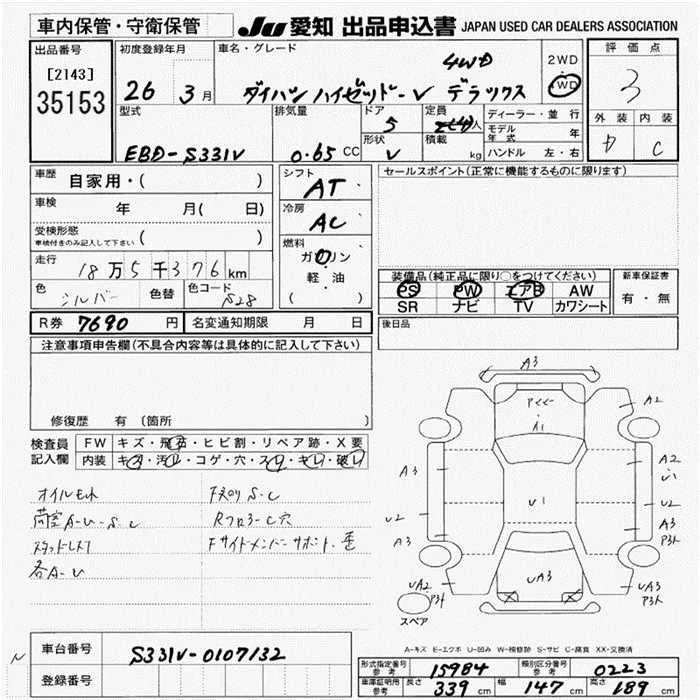 車内保管・守衛保管
JU 愛知 出品申込書 JAPAN USED CAR DEALERS ASSOCIATION
出品番号
[2143]
35153
初度登録年月
26 3月
車名・グレード
4WD
ダイハツ ハイゼットバーV デラックス
2WD
4WD
評価点
3
外装 内装
D C
型式
EBD-S331V
排気量
0.65 CC
ドア
5
形状
V
定員
人
積載
kg
ディーラー・並行
モデル年式 年
ハンドル 左・右
車歴
自家用・( )
車検
年 月( 日)
受検形態
車検付きのみ記入して下さい ( )
走行
18万5千376km
色
シルバー
色替
色コード
S28
シフト
AT
冷房
AC
燃料
ガソリン
軽・油
( )
セールスポイント(正常に機能するものに限ります)
装備品(純正品に限り○をつけてください)
PS PW エアB AW
SR ナビ TV カワシート
新車保証書
有・無
後日品
R券 7690 円
名変通知期限 月 日
注意事項申告欄(不具合内容等は具体的に記入して下さい)
修復歴 有 (箇所
検査員記入欄
FW キズ・飛石・ヒビ割・リペア跡・X要
内装 キズ・汚レ・コゲ・穴・スレ・キレ・破レ
オイルモレ
荷室A-U-S-C
スタッドレス7
各A-U
F下回リS-C
Rフロアー C穴
Fサイドメンバーサポート-歪
A3
A2
A1
A3
A2
U1
U1
U2
U2
A3
A3
P3ケ
UA2
P3ケ
UA3
UA3
P3ケ
スペア
A-キズ E-エクボ U-凹み W-補修跡 S-サビ C-腐食 XX-交換済
車台番号
S331V-0107132
登録番号
形式指定番号参考 15984
類別区分番号参考 0223
車庫証明用参考 長さ 339 cm 幅 147 cm 高さ 189 cm